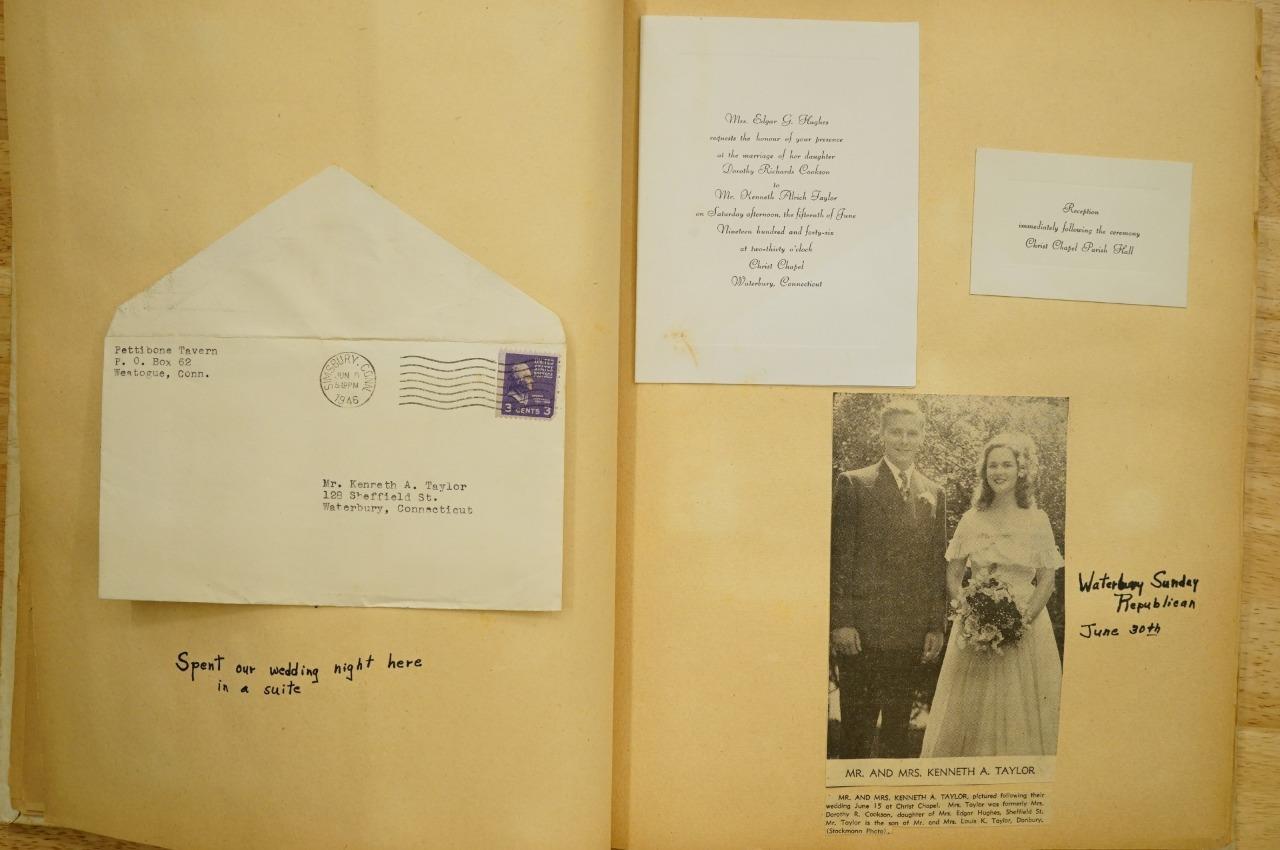 Pettibone Tavern
P. O. Box 62
Weatogue, Conn.
SIMSBURY, CONN.
JUN
PM
1946
UNITED
STATES
POSTAGE
3 CENTS 3
Mr. Kenneth A. Taylor
128 Sheffield St.
Waterbury, Connecticut
Spent our wedding night here
in a suite
Mrs. Edgar G. Hughes
requests the honour of your presence
at the marriage of her daughter
Dorothy Richards Cookson
to
Mr. Kenneth Alrich Taylor
on Saturday afternoon, the fifteenth of June
Nineteen hundred and forty-six
at two-thirty o'clock
Christ Chapel
Waterbury, Connecticut
Reception
immediately following the ceremony
Christ Chapel Parish Hall
Waterbury Sunday
Republican
June 30th
MR. AND MRS. KENNETH A. TAYLOR
MR. AND MRS. KENNETH A. TAYLOR, pictured following their
wedding June 15 at Christ Chapel. Mrs. Taylor was formerly Mrs.
Dorothy R. Cookson, daughter of Mrs. Edgar Hughes, Sheffield St.
Mr. Taylor is the son of Mr. and Mrs. Louis K. Taylor, Danbury.
(Stockmann Photo).